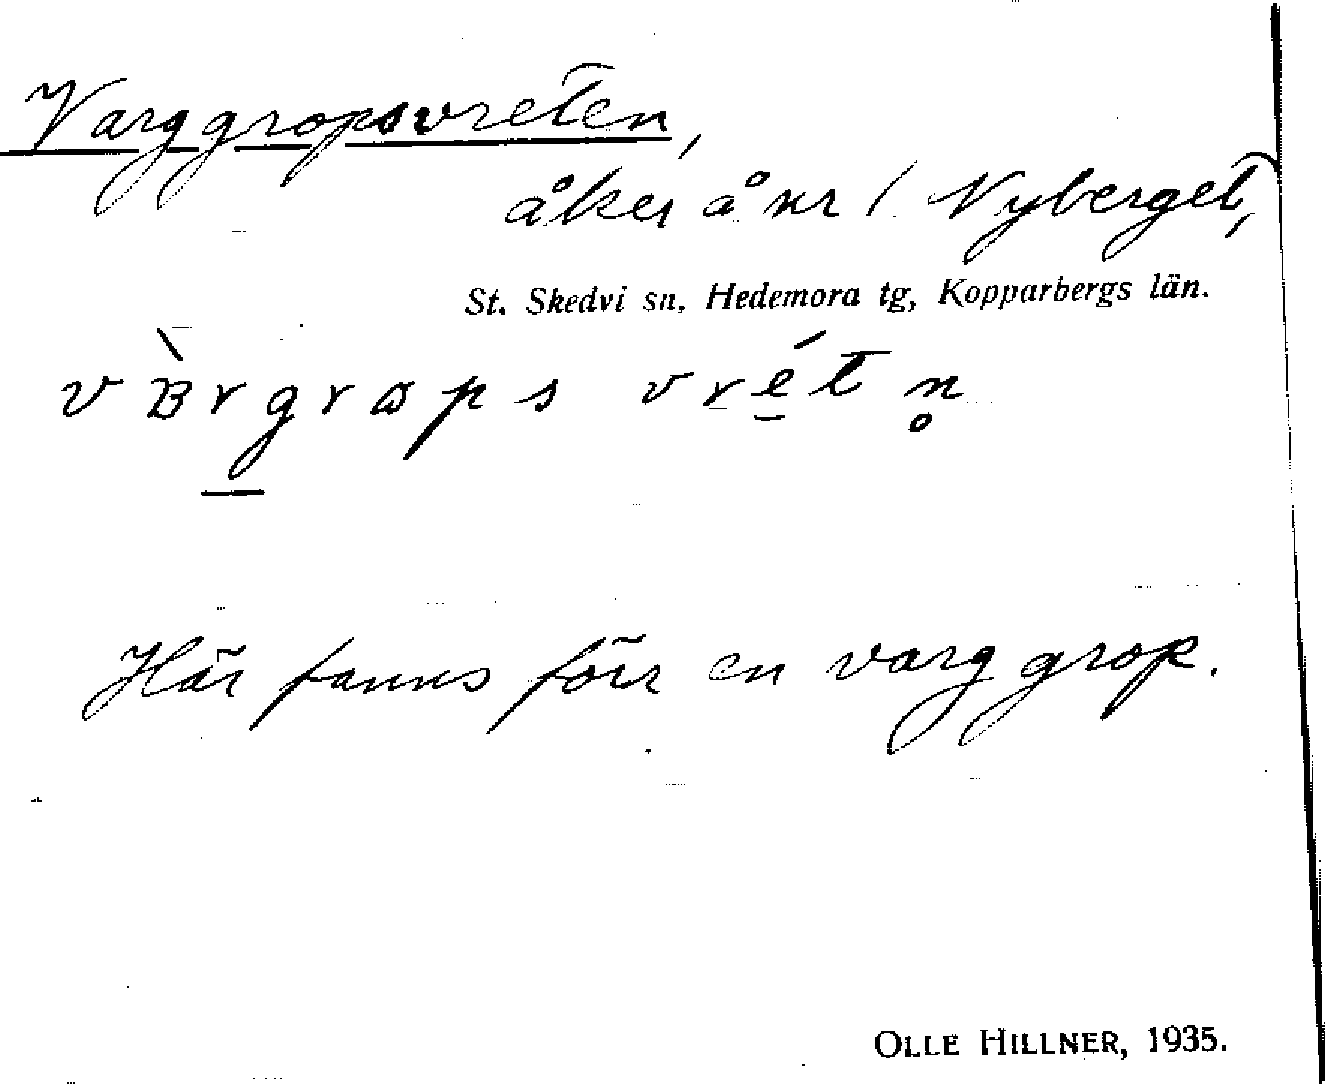 Varggropsvreten,
åker å nr 1 Nyberget,
St. Skedvi sn, Hedemora tg, Kopparbergs län.
vàrgrɷps vrét n̥
Här fanns förr en varggrop.
OLLE HILLNER, 1935.